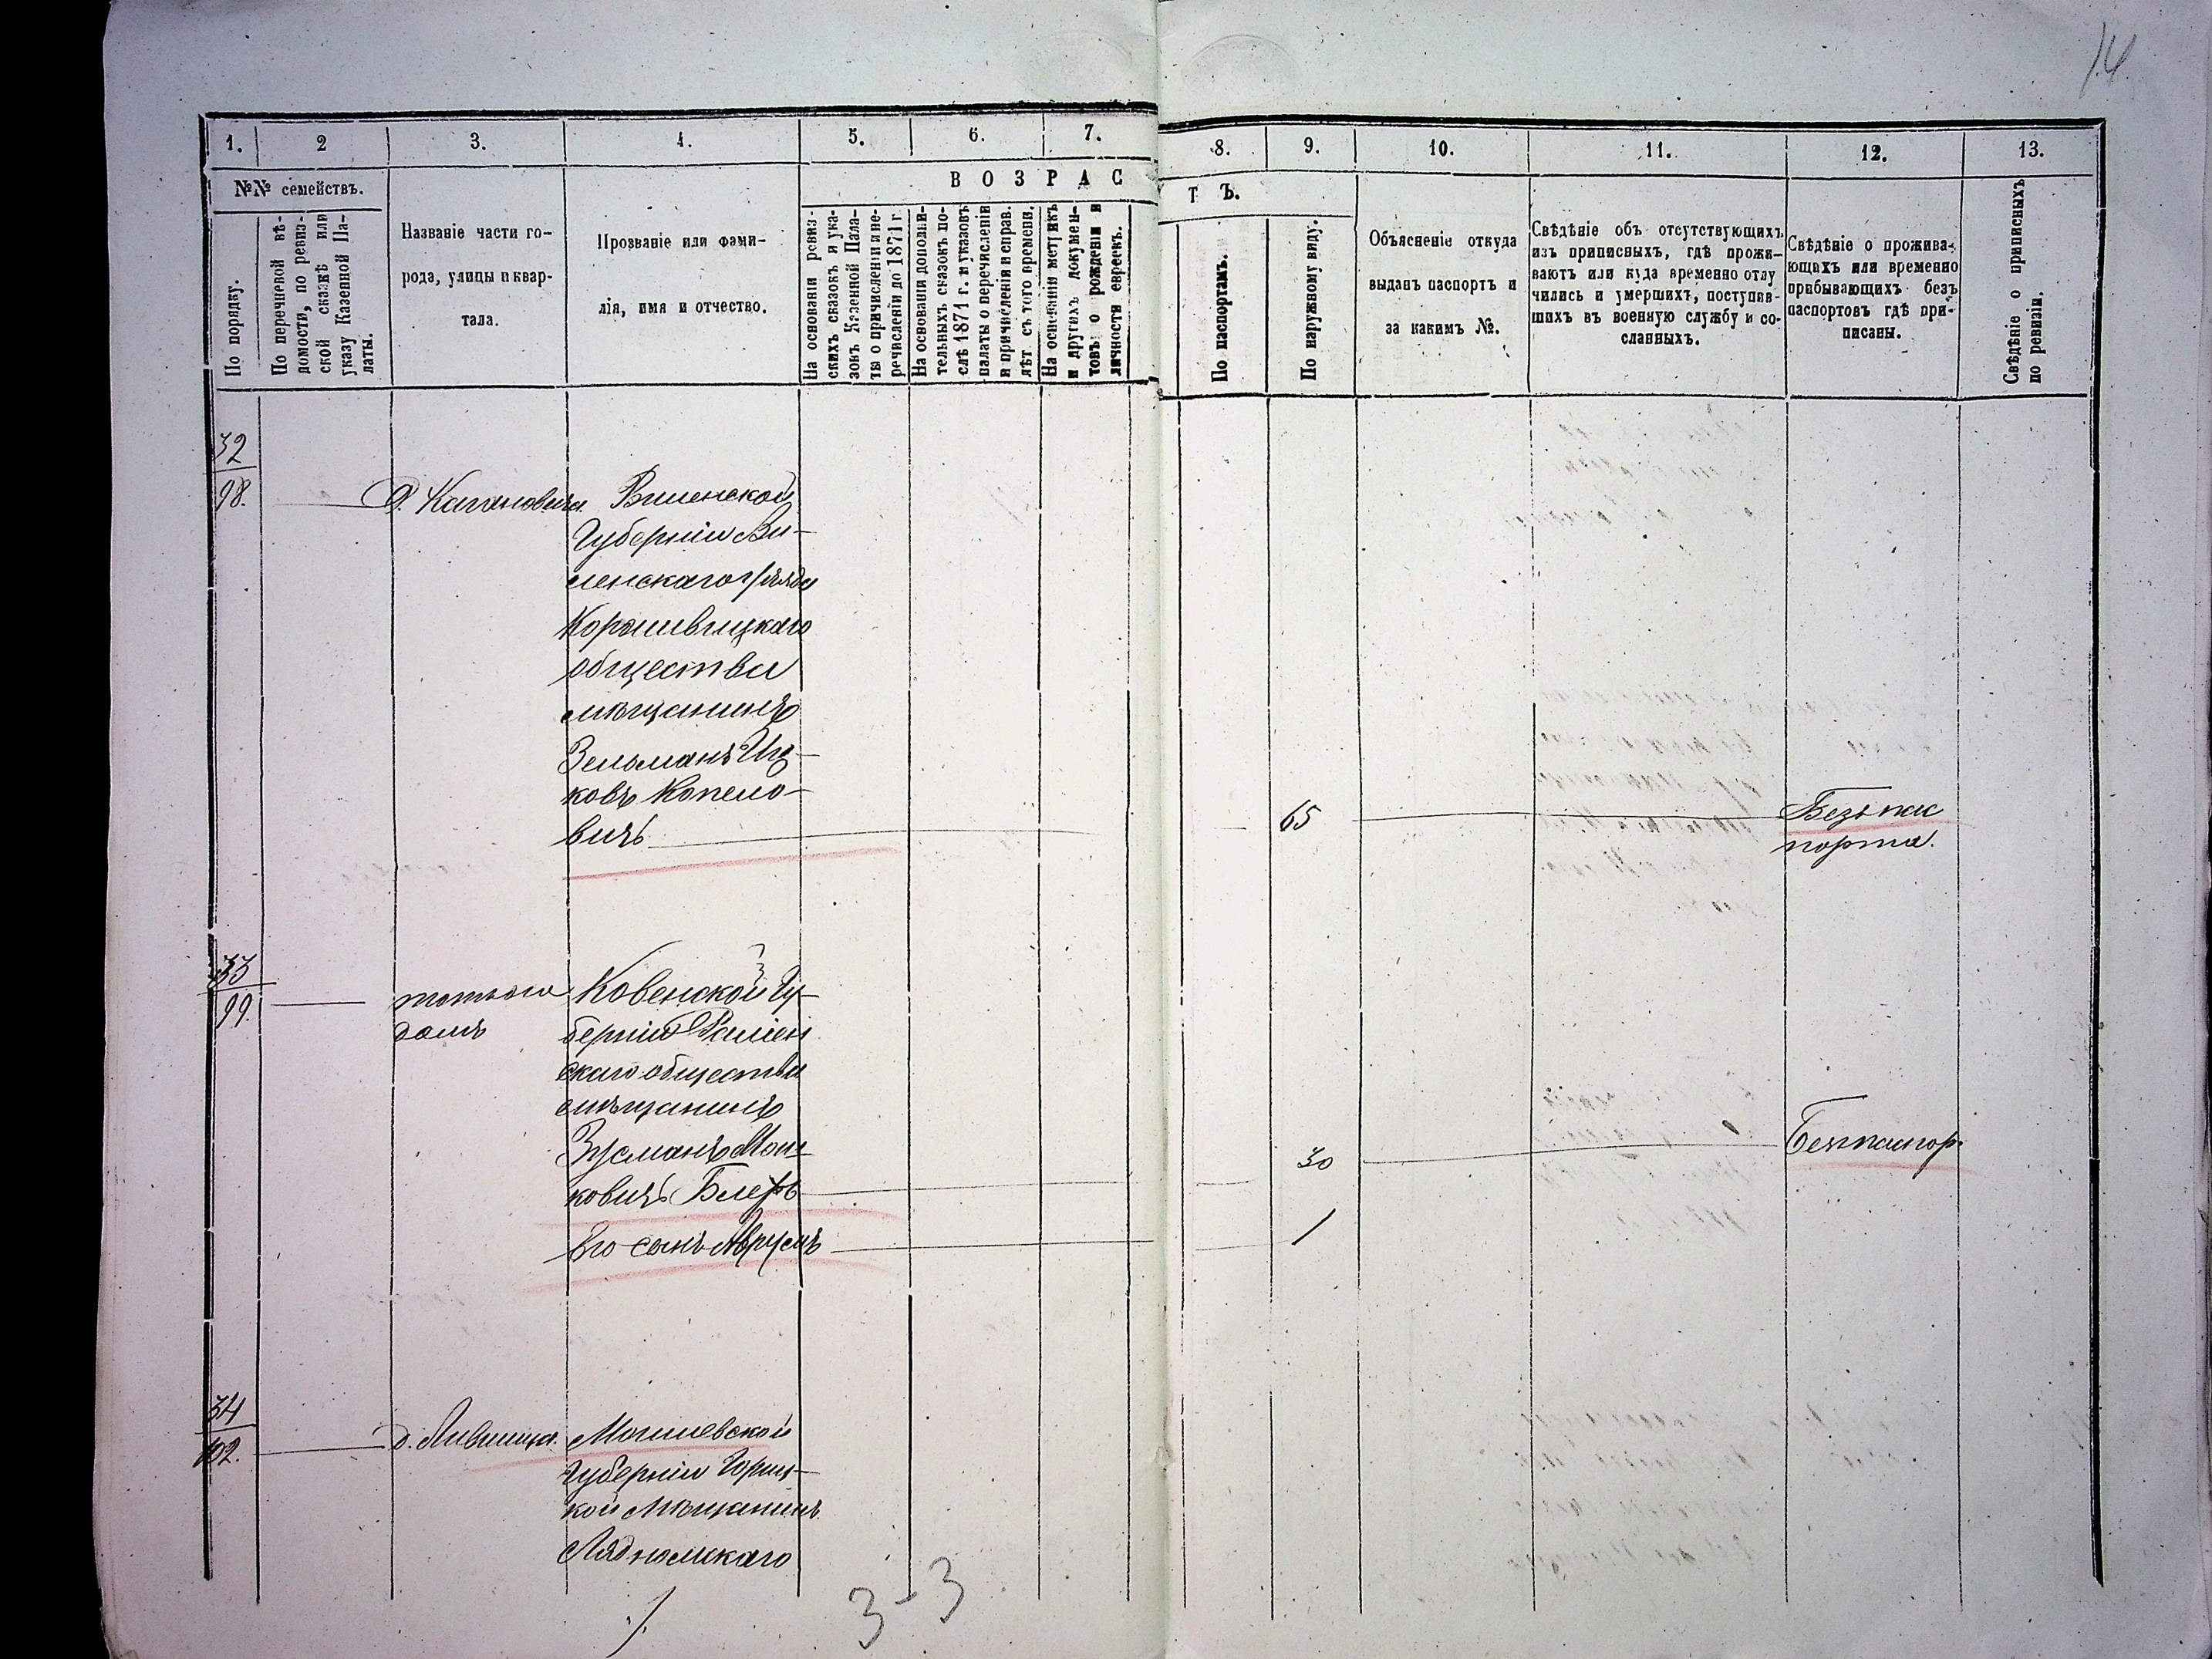 14
1. 2 3. 4. 5. 6. 7. 8. 9. 10. 11. 12. 13.
№№ семействъ.
ВОЗРАСТЪ.
По порядку.
По перечневой вѣ-
домости, по ревиз-
ской сказкѣ или
указу Казенной Па-
латы.
Названіе части го-
рода, улицы и квар-
тала.
Прозваніе или фами-
лія, имя и отчество.
На основаніи ревиз-
скихъ сказокъ и ука-
зовъ Казенной Пала-
ты о причисленіи и пе-
речисленіи до 1871 г.
На основаніи дополни-
тельныхъ сказокъ по-
слѣ 1871 г. и указовъ
палаты о перечисленіи
и причисленіи и справ.
лѣт съ того времени.
На основаніи метрикъ
и другихъ докумен-
товъ о рожденіи и
личности евреевъ.
По паспортамъ.
По наружному виду.
Объясненіе откуда
выданъ паспортъ и
за какимъ №.
Свѣдѣніе объ отсутствующихъ
изъ приписныхъ, гдѣ прожи-
ваютъ или куда временно отлу
чились и умершихъ, поступив-
шихъ въ военную службу и со-
сланныхъ.
Свѣдѣніе о прожива-
ющихъ или временно
прибывающихъ безъ
паспортовъ гдѣ при-
писаны.
Свѣдѣніе о приписныхъ
по ревизіи.
32
98.
Д. Кагановича.
Виленской
Губерніи Ви-
ленскаго уѣзда
общества
мѣщанинъ
Зельманъ Иц-
ковъ Копело-
вичъ
65
Безъ пас
порта.
33
99.
тотъ же
домъ
Ковенской Гу-
берніи Расіен
скаго общества
мѣщанинъ
Зусманъ Мош-
ковичъ
30
Безъ паспор.
Его сынъ Аврумъ
1
34
102.
д. Лившица.
Могилевской
Губерніи Горец-
кой Мѣщанинъ
3-3